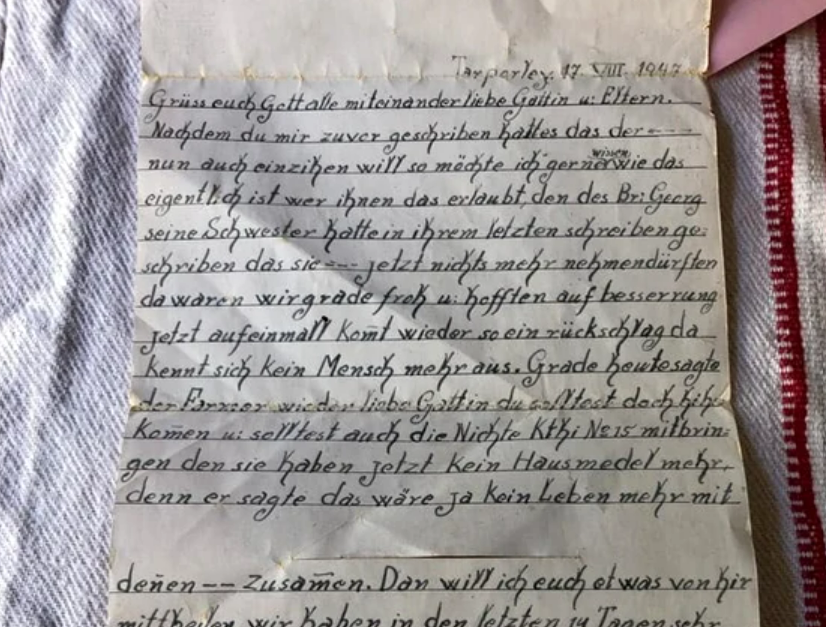 Tarporley. 17. VIII. 1947
Grüss euch Gott alle miteinander liebe Gattin u: Eltern.
Nachdem du mir zuvor geschriben hattes das der ----
wissen
nun auch einzihen will so möchte ich gerne wie das
eigentlich ist wer ihnen das erlaubt, den des Br: Georg
seine Schwester hatte in ihrem letzten schreiben ge:
schriben das sie --- jetzt nichts mehr nehmen dürften
da waren wir grade froh u: hofften auf besserrung
jetzt aufeinmall kom̄t wieder so ein rückschlag da
kennt sich kein Mensch mehr aus. Grade heute sagte
der Farmer wieder liebe Gattin du solltest doch hihr
kom̄en u: solltest auch die Nichte Kthi No 15 mitbrin:
gen den sie haben jetzt kein Hausmedel mehr,
denn er sagte das wäre ja kein Leben mehr mit
den̄en -- zusam̄en. Dan will ich euch etwas von hir
mittheilen wir haben in den letzten 14 Tagen sehr